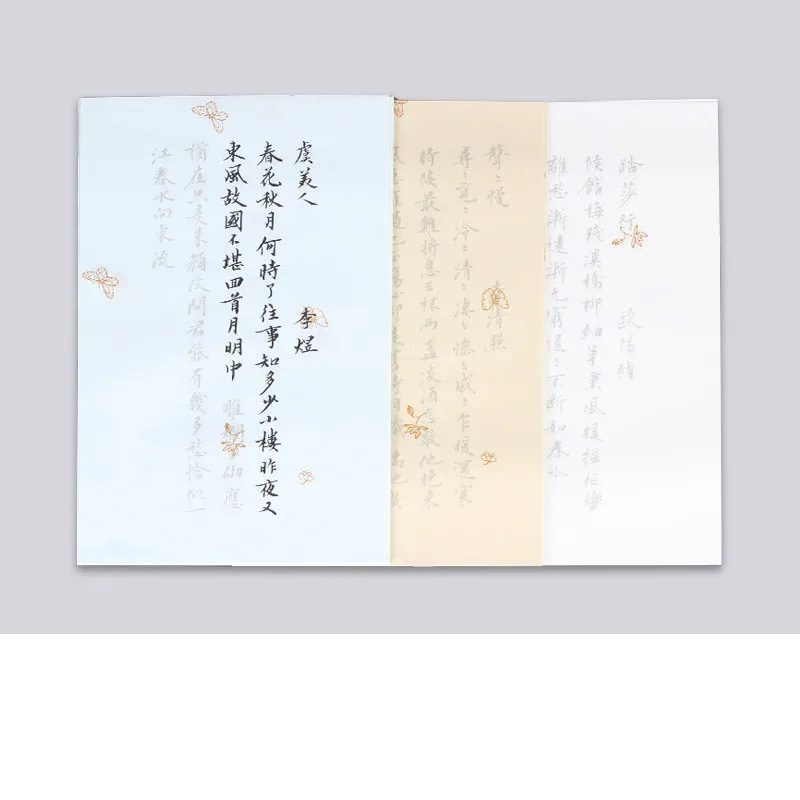 虞美人 李煜
春花秋月何時了往事知多少小樓昨夜又
東風故國不堪回首月明中 雕砌應
猶在只是朱顏改問君能有幾多愁恰似一
江春水向東流
聲〻慢 李清照
尋〻覓〻冷〻清〻淒〻慘〻戚〻乍暖還寒
時候最難將息三杯兩盞淡酒怎敵他晚來
踏莎行 歐陽修
候館梅殘溪橋柳細草薰風暖搖征轡
離愁漸遠漸无窮迢〻不斷如春水